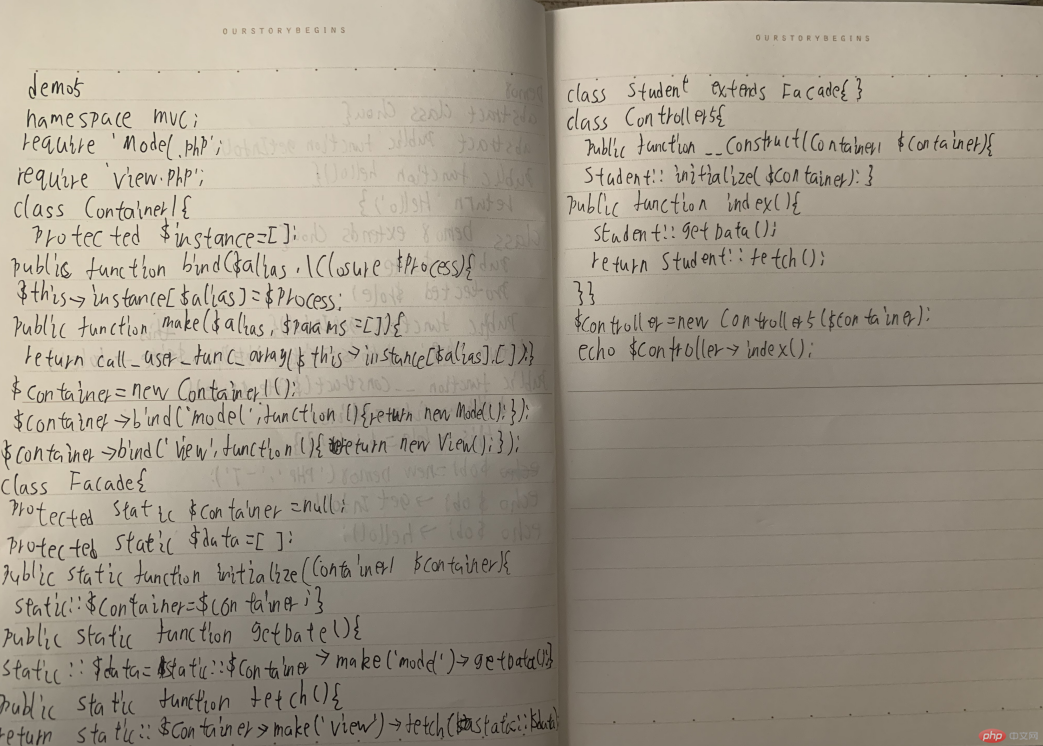 OURSTORYBEGINS
demo5
namespace mvc;
require 'Model.php';
require 'view.php';
class Container1{
protected $instance=[];
public function bind($alias,\Closure $process){
$this->instance[$alias]=$process;
public function make($alias,$params=[]){
return call_user_func_array($this->instance[$alias],[]);}
$container=new Container1();
$container->bind('model',function(){return new Model();});
$container->bind('view',function(){return new View();});
class Facade{
protected static $container=null;
protected static $data=[];
public static function initialize(Container1 $container){
static::$container=$container;}
public static function getDate(){
static::$data=static::$container->make('model')->getData();}
public static function fetch(){
return static::$container->make('view')->fetch(static::$data)
OURSTORYBEGINS
class Student extends Facade{}
class Controller5{
public function __construct(Container1 $container){
Student::initialize($container);}
public function index(){
Student::getData();
return Student::fetch();
}}
$controller=new Controller5($container);
echo $controller->index();
php中文网